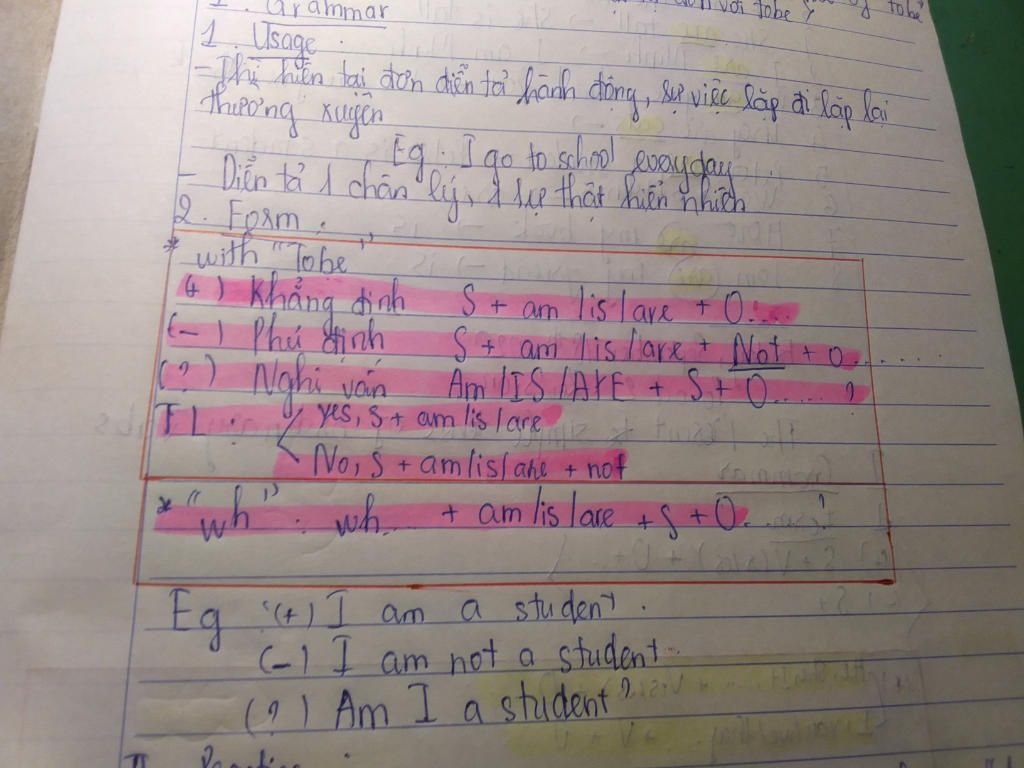 I. Grammar
1. Usage:
- Thì hiện tại đơn diễn tả hành động, sự việc lặp đi lặp lại
thường xuyên
Eg: I go to school everyday
- Diễn tả 1 chân lý, 1 sự thật hiển nhiên
2. Form:
* with "Tobe"
(+) Khẳng định S + am /is/are + O.....
(-) Phủ định S + am /is/are + Not + O..........
(?) Nghi vấn Am/IS/ARE + S + O.....?
TL: yes, s + am/is/are
No, s + am/is/are + not
* "wh": wh... + am/is/are + S + O....?
Eg: (+) I am a student.
(-) I am not a student.
(?) Am I a student?
II.